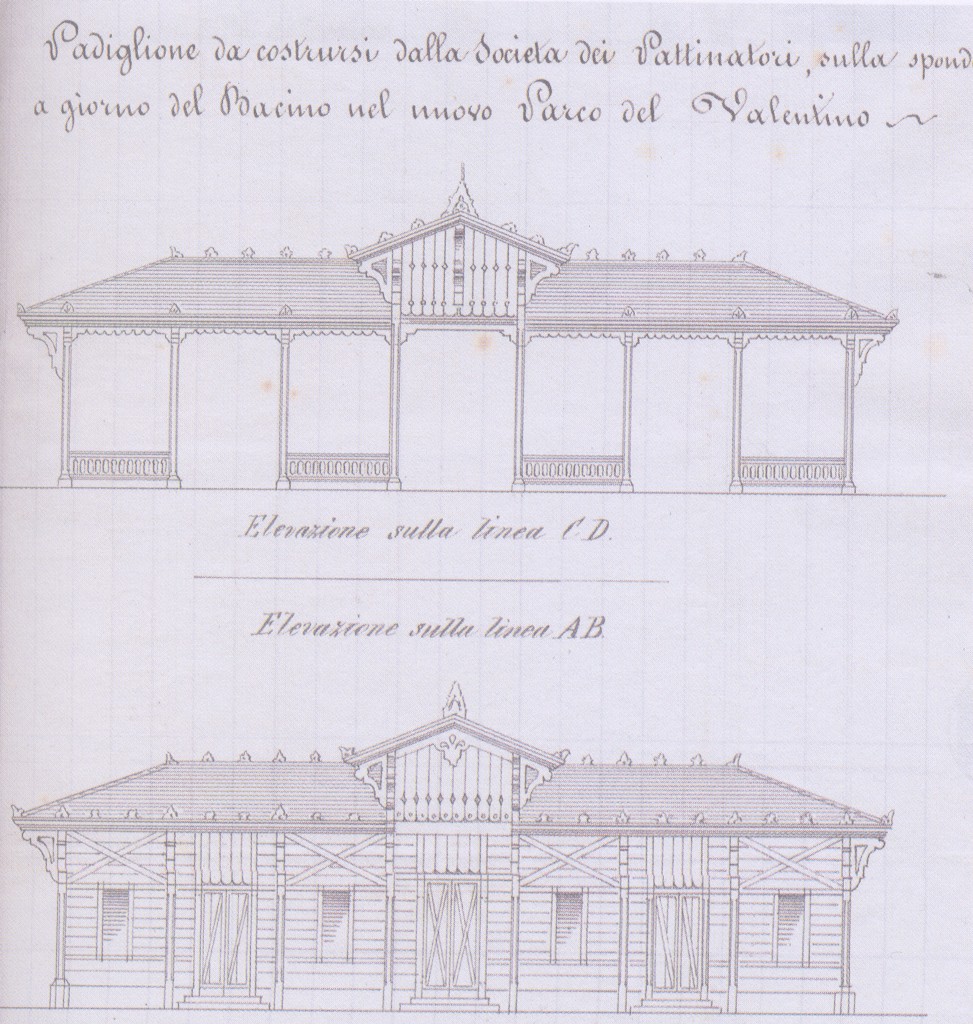 Padiglione da costrursi dalla Società dei Pattinatori, sulla spond
a giorno del Bacino nel nuovo Parco del Valentino
Elevazione sulla linea C D.
Elevazione sulla linea A B.